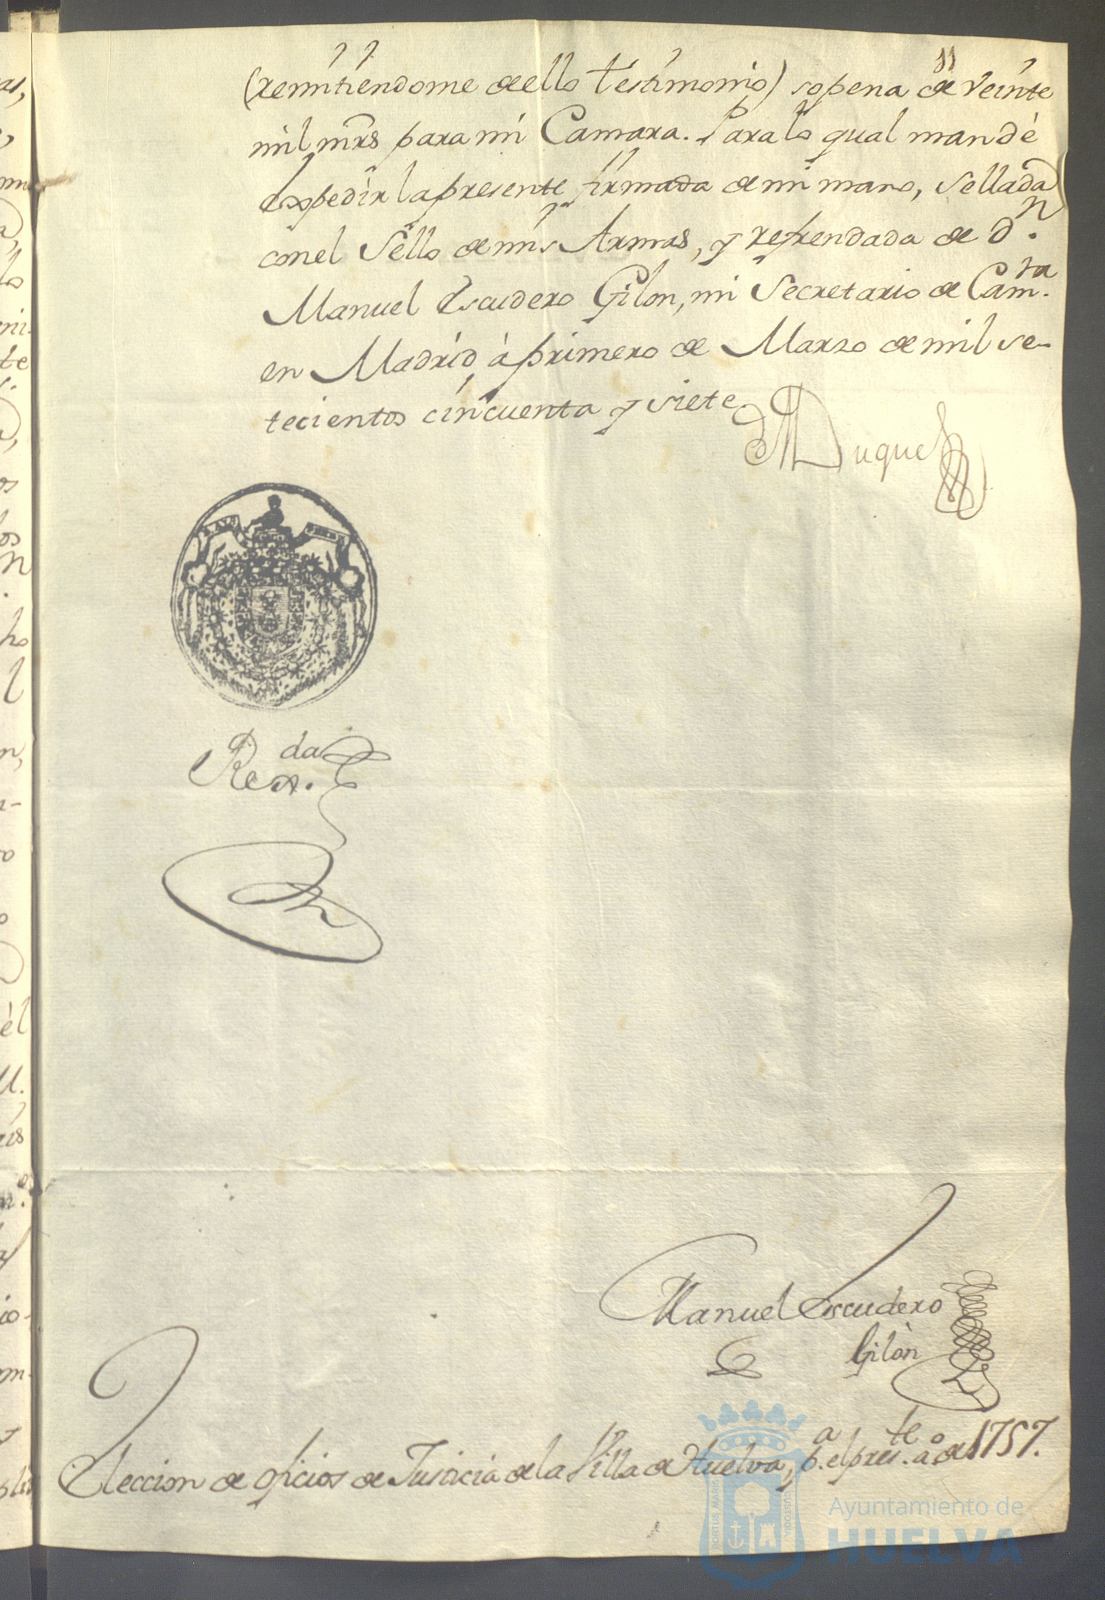 11
(remitiendome de ello testimonio) so pena de veinte
mil mrs para mi Camara. Para lo qual mandè
expedir la presente firmada de mi mano, sellada
con el Sello de mis Armas, y refrendada de Dn.
Manuel Escudero Gilon, mi Secretario de Camra.
en Madrid, à primero de Marzo de mil se-
tecientos cincuenta y siete.
El Duque
Rexda.
Manuel Escudero
Gilòn
Eleccion de oficios de Justicia de la Villa de Huelva, pa. el preste. ao. de 1757.
Ayuntamiento de
HUELVA